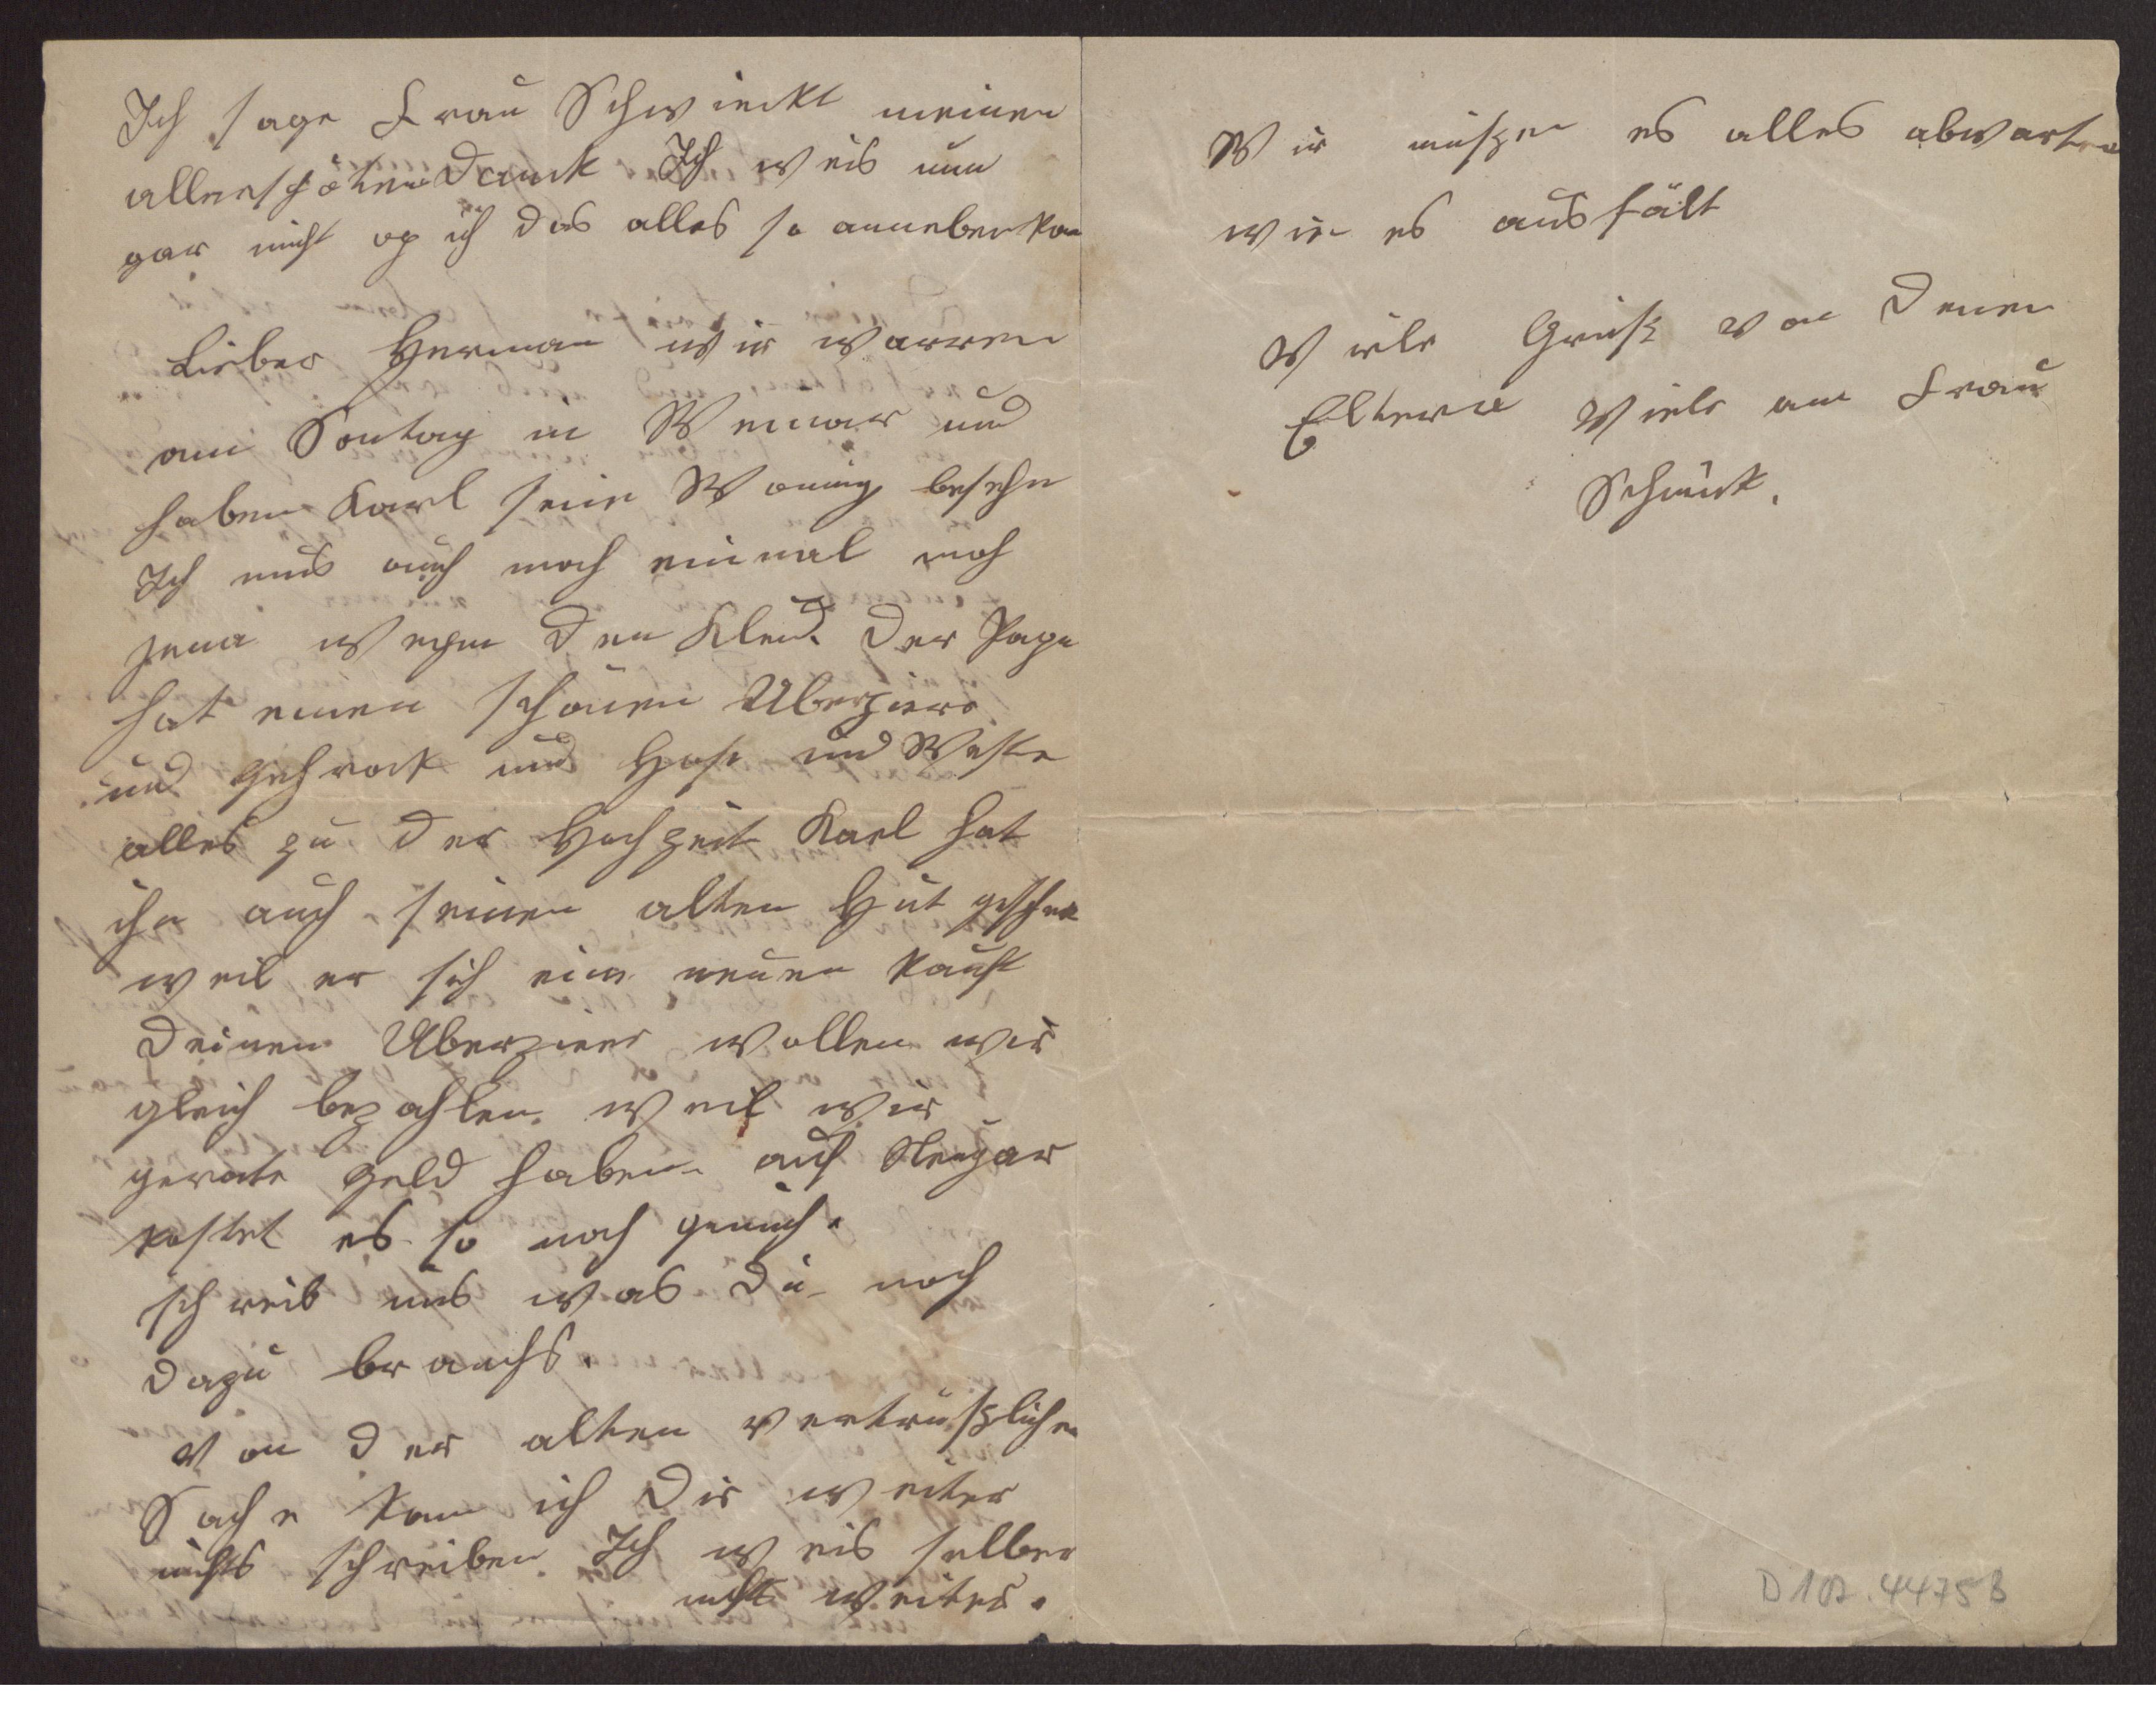 Ich sage Frau Schwickt meinen
allerschöten Danck Ich weis nun
gar nicht op ich das alles so anneben kan
Lieber Herman wir warren
am Sontag in Weimar und
haben Karl seine Wonung besehn
Ich mus auch noch einmal nach
Jena wegen den Kleid. Der Papa
hat einen schönen Uberzier
und Gehrock und Hose und Weste
alles zu der Hochzeit Karl hat
ihn auch seinen alten Hut geschen
weil er sich ein neuen kauft
Deinen Uberzier wollen wir
gleich bezahlen. weil wir
gerate Geld haben auf Neujar
kostet es so noch genuch.
schreib uns was Du noch
dazu brauchs.
von der alten vertrüszlichen
Sache kann ich Dir weiter
nichts schreiben Ich weis selber
nicht weiter.
Wir müszen es alles abwarten
wie es ausfält
Viele Grüsz von Deinen
Eltern Viele an Frau
Schmückt.
D 107.4475 B